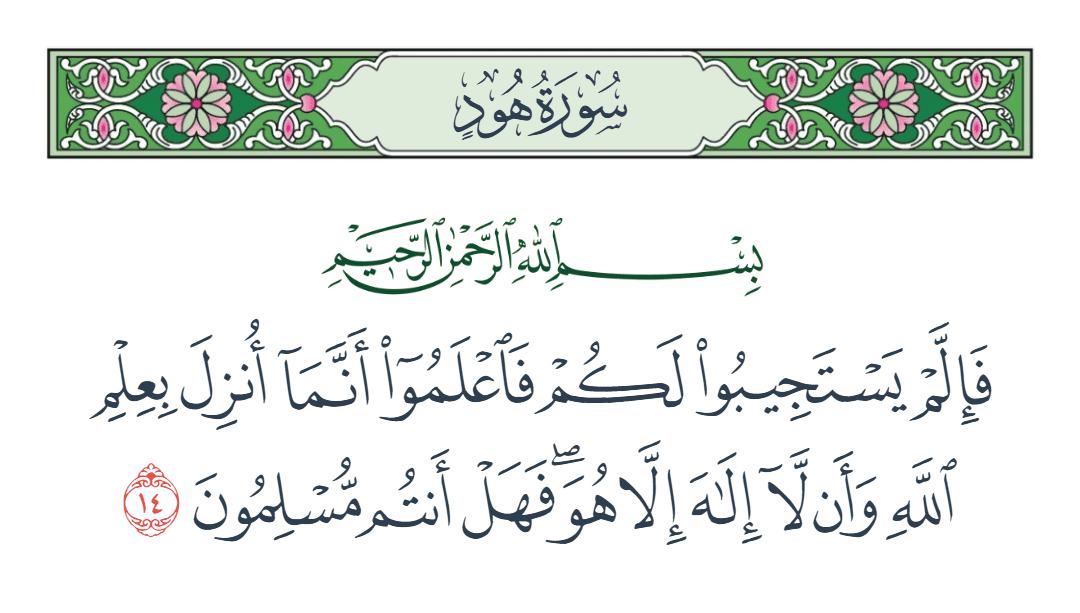 سُورَةُ هُودٍ
بِسْمِ ٱللَّهِ ٱلرَّحْمَٰنِ ٱلرَّحِيمِ
فَإِلَّمْ يَسْتَجِيبُوا۟ لَكُمْ فَٱعْلَمُوٓا۟ أَنَّمَآ أُنزِلَ بِعِلْمِ
ٱللَّهِ وَأَن لَّآ إِلَٰهَ إِلَّا هُوَ ۖ فَهَلْ أَنتُم مُّسْلِمُونَ ١٤